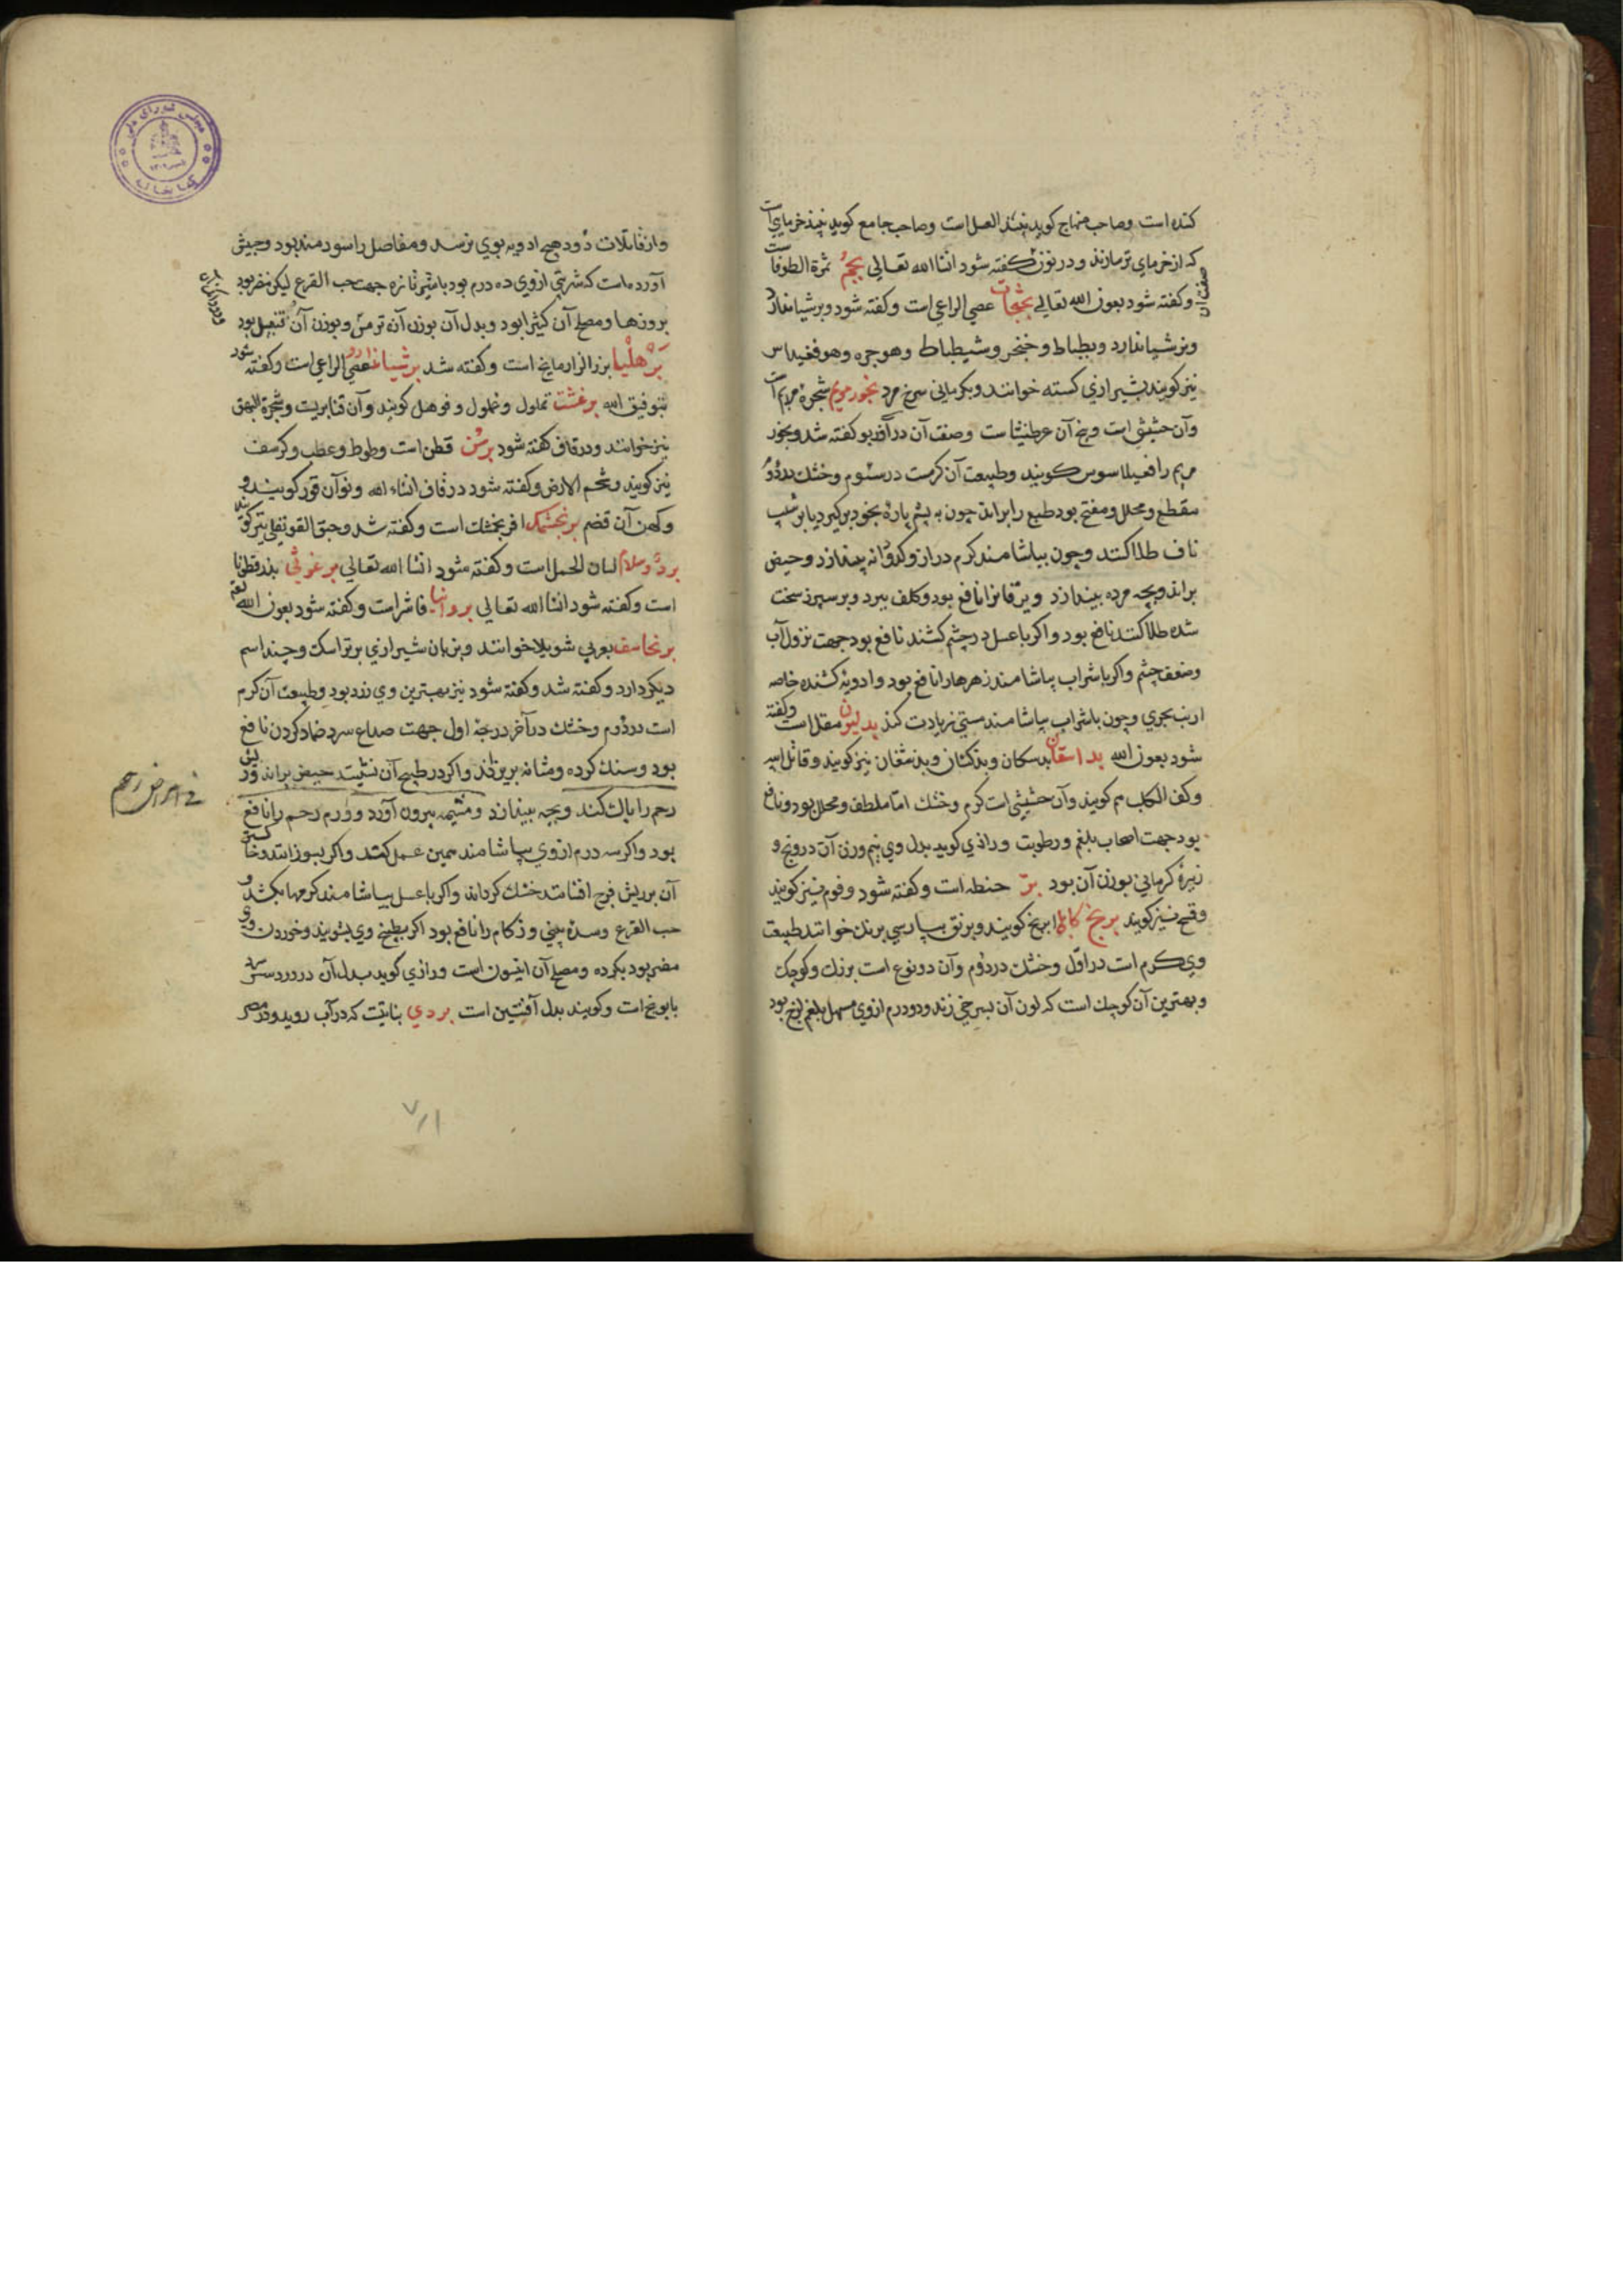 کنده است وصاحب منهاج کوید نبیذ العسل است وصاحب جامع کوید نبیذ خرمای است
که از خرمای تر سازند و در نون کفته شود انشا الله تعالی بجم ثمرة الطرفاست
وکفته شود بعون الله تعالی عصی الراعی است وکفته شود وبرشیاندارد
وبرشیاندارد وبطباط وخنجر وشیطباط وهوجره وهو
نیز کویند بشیرازی کسته خوانند وبکرمانی سرخ مرد بخور مریم شجره مریم است
وآن حشیشی است وبیخ آن عرطنیثا ست وصفت آن در آذربو کفته شد وبخور
مریم را فغیلاسوس کویند وطبیعت آن کرمست در سئوم وخشك در دوم
مقطع ومحلل ومفتح بود طبع را براند چون به پشم پاره بخود برکیرد یا بر شیب
ناف طلا کنند وچون بیاشامند کرم دراز وکدودانه بیندازد وحیض
براند وبچه مرده بیندازد ویرقانرا نافع بود وکلف ببرد وبر سپرز سخت
شده طلا کنند نافع بود واکر باعسل در چشم کشند نافع بود جهت نزول آب
وضعف چشم واکر باشراب بیاشامند زهرهارا نافع بود وادویه کشنده خاصه
ارنب بحری وچون باشراب بیاشامند مستی زیادت کند بدلیون مقل است وکفته
شود بعون الله بداسقان بدسکان وبدکشان وبدشغان نیز کویند وقاتل ابیه
وکف الکلب هم کویند وآن حشیشی است کرم وخشك اما ملطف ومحلل بود ونافع
بود جهت اصحاب بلغم ورطوبت ورازی کوید بدل وی نیم وزن آن درونج و
زیرهٔ کرمانی بوزن آن بود برّ حنطه است وکفته شود وفوم نیز کویند
وقمح نیز کویند برنج کابلی ابرنج کویند وبرنق بپارسی برنك خوانند طبیعت
وی کرم است در اول وخشك در دوم وآن دو نوع است بزرك وکوچك
وبهترین آن کوچك است که لون آن بسرخی زند ودو درم از وی مسهل بلغم لزج بود
واز قاتلات دود هیچ ادویه بوی نرسد ومفاصل را سودمند بود وحبیش
آورده است که شربتی از وی ده درم بود باشیر تازه جهت حب القرع لیکن مضر بود
برودها ومصلح آن کثیرا بود وبدل آن بوزن آن ترمس وبوزن آن قنبیل بود
برهلیا بزر الرازیانج است وکفته شد برشیاندارو عصی الراعی است وکفته شود
بتوفیق الله برغشت تملول وغملول وفوهل کویند وآن قنابریست وشجرة البهق
نیز خوانند ودر قاف کفته شود برس قطن است وطوط وعطب وکرسف
نیز کویند وشحم الارض وکفته شود در قاف انشاء الله ونو آن قور کویند و
وکهن آن قضم برنجمشك افرنجمشك است وکفته شد وحبق القرنفلی نیز کویند
بردوسلام لسان الحمل است وکفته شود انشا الله تعالی برغوثی بذر قطونا
است وکفته شود انشا الله تعالی بروانیا فاشراست وکفته شود بعون الله تعالی
برنجاسف بعربی شویلا خوانند وبزبان شیرازی برتراسك وچند اسم
دیکر دارد وکفته شد وکفته شود نیز بهترین وی زرد بود وطبیعت آن کرم
است در دوم وخشك در آخر درجهٔ اول جهت صداع سرد ضماد کردن نافع
بود وسنك کرده ومثانه بریزاند واکر در طبیخ آن نشینند حیض براند وریش
رحم را پاك کند وبچه بیندازد ومشیمه بیرون آورد وورم رحم را نافع
بود واکر سه درم از وی بیاشامند همین عمل کند واکر بسوزانند وخاکستر
آن بر ریش فرج افشانند خشك کرداند واکر باعسل بیاشامند کرمها بکشد و
حب القرع وسدهٔ بینی وزکام را نافع بود اکر بطبیخ وی بشویند وخوردن وی
مضر بود بکرده ومصلح آن انیسون است ورازی کوید بدل آن در درد سر سرد
بابونج است وکویند بدل آن افسنتین است بردی نباتیست که در آب روید ودر مصر
فی امراض رحم